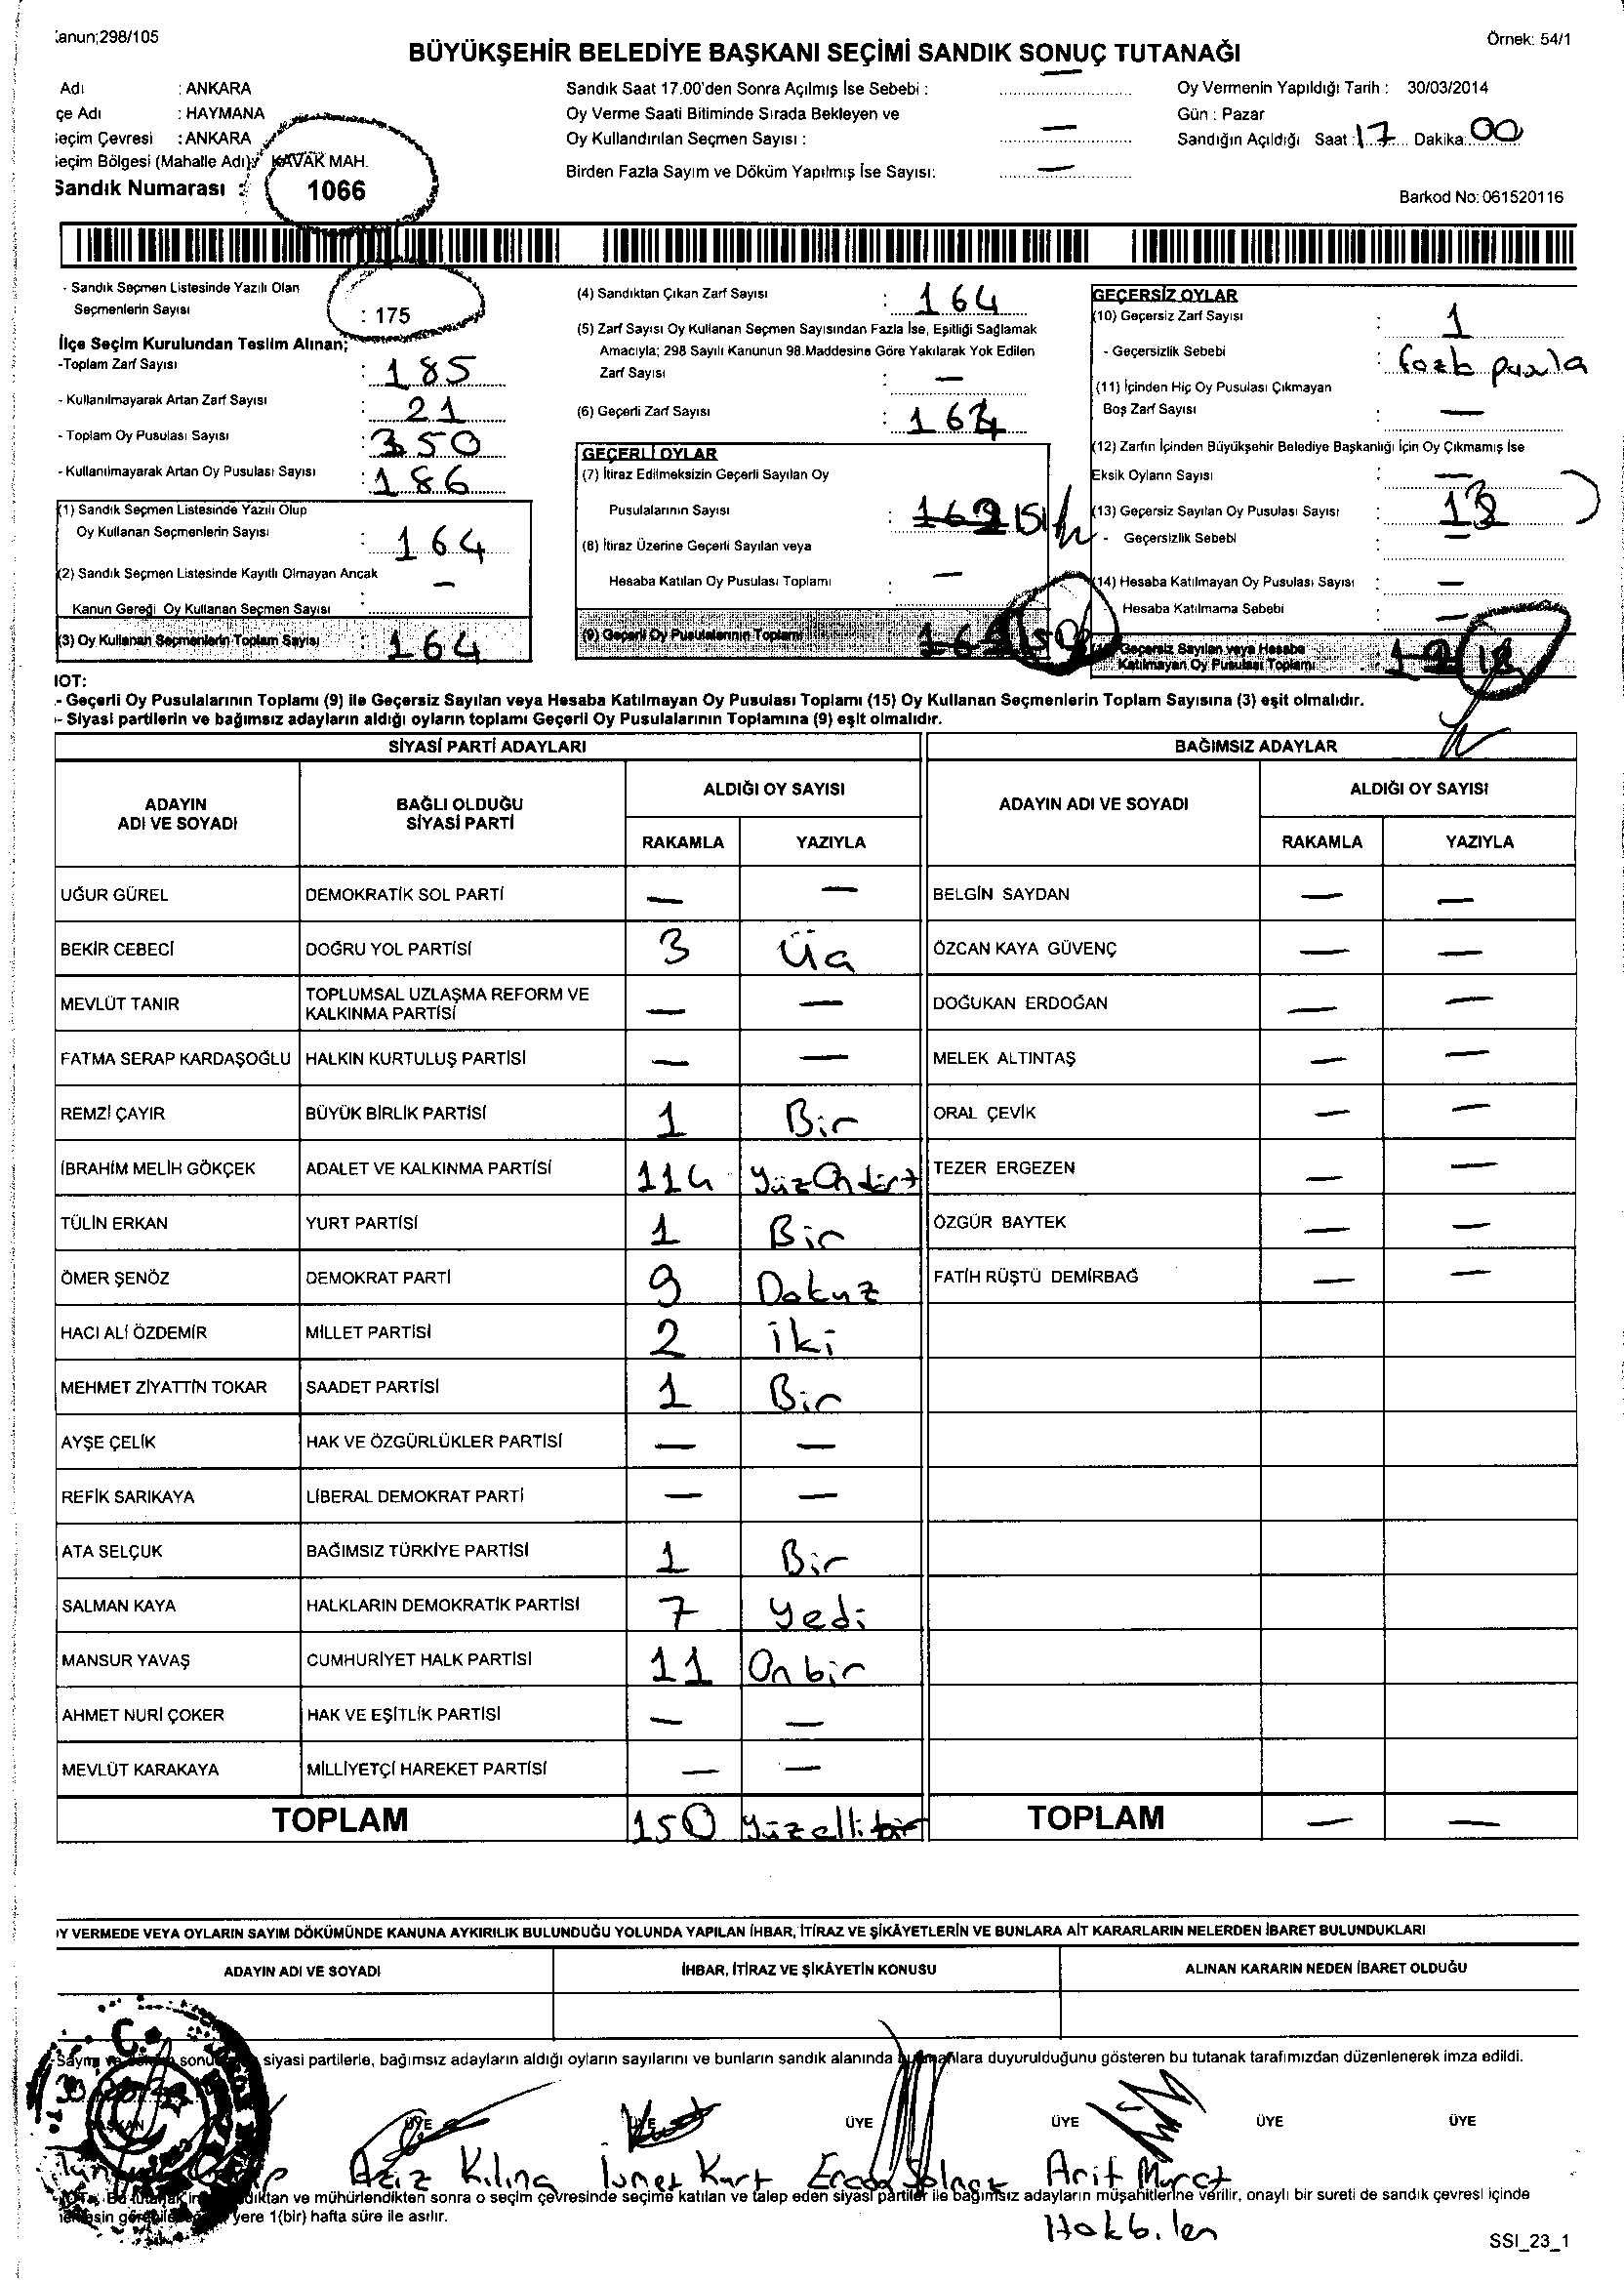 anun;298/105
Örnek: 54/1
BÜYÜKŞEHİR BELEDİYE BAŞKANI SEÇİMİ SANDIK SONUÇ TUTANAĞI
Adı : ANKARA
çe Adı : HAYMANA
eçim Çevresi : ANKARA
eçim Bölgesi (Mahalle Adı) KAVAK MAH.
Sandık Numarası : 1066
Sandık Saat 17.00'den Sonra Açılmış İse Sebebi : —
Oy Verme Saati Bitiminde Sırada Bekleyen ve
Oy Kullandırılan Seçmen Sayısı : —
Birden Fazla Sayım ve Döküm Yapılmış İse Sayısı: —
Oy Vermenin Yapıldığı Tarih : 30/03/2014
Gün : Pazar
Sandığın Açıldığı Saat : 17 Dakika: 00
Barkod No: 061520116
- Sandık Seçmen Listesinde Yazılı Olan
Seçmenlerin Sayısı : 175
İlçe Seçim Kurulundan Teslim Alınan;
-Toplam Zarf Sayısı : 185
- Kullanılmayarak Artan Zarf Sayısı : 21
- Toplam Oy Pusulası Sayısı : 350
- Kullanılmayarak Artan Oy Pusulası Sayısı : 186
(1) Sandık Seçmen Listesinde Yazılı Olup
Oy Kullanan Seçmenlerin Sayısı : 164
(2) Sandık Seçmen Listesinde Kayıtlı Olmayan Ancak
Kanun Gereği Oy Kullanan Seçmen Sayısı : —
(3) Oy Kullanan Seçmenlerin Toplam Sayısı : 164
(4) Sandıktan Çıkan Zarf Sayısı : 164
(5) Zarf Sayısı Oy Kullanan Seçmen Sayısından Fazla İse, Eşitliği Sağlamak
Amacıyla; 298 Sayılı Kanunun 98.Maddesine Göre Yakılarak Yok Edilen
Zarf Sayısı : —
(6) Geçerli Zarf Sayısı :
GEÇERLİ OYLAR
(7) İtiraz Edilmeksizin Geçerli Sayılan Oy
Pusulalarının Sayısı :
(8) İtiraz Üzerine Geçerli Sayılan veya
Hesaba Katılan Oy Pusulası Toplamı : —
(9) Geçerli Oy Pusulalarının Toplamı
GEÇERSİZ OYLAR
(10) Geçersiz Zarf Sayısı : 1
- Geçersizlik Sebebi :
(11) İçinden Hiç Oy Pusulası Çıkmayan
Boş Zarf Sayısı : —
(12) Zarfın İçinden Büyükşehir Belediye Başkanlığı İçin Oy Çıkmamış İse
Eksik Oyların Sayısı —
(13) Geçersiz Sayılan Oy Pusulası Sayısı :
- Geçersizlik Sebebi : —
(14) Hesaba Katılmayan Oy Pusulası Sayısı : —
Hesaba Katılmama Sebebi : —
Geçersiz Sayılan veya Hesaba
Katılmayan Oy Pusulası Toplamı :
NOT:
- Geçerli Oy Pusulalarının Toplamı (9) ile Geçersiz Sayılan veya Hesaba Katılmayan Oy Pusulası Toplamı (15) Oy Kullanan Seçmenlerin Toplam Sayısına (3) eşit olmalıdır.
- Siyasi partilerin ve bağımsız adayların aldığı oyların toplamı Geçerli Oy Pusulalarının Toplamına (9) eşit olmalıdır.
SİYASİ PARTİ ADAYLARI BAĞIMSIZ ADAYLAR
ADAYIN ADI VE SOYADI BAĞLI OLDUĞU SİYASİ PARTİ ALDIĞI OY SAYISI ADAYIN ADI VE SOYADI ALDIĞI OY SAYISI
RAKAMLA YAZIYLA RAKAMLA YAZIYLA
UĞUR GÜREL DEMOKRATİK SOL PARTİ — — BELGİN SAYDAN — —
BEKİR CEBECİ DOĞRU YOL PARTİSİ 3 Üç ÖZCAN KAYA GÜVENÇ — —
MEVLÜT TANIR TOPLUMSAL UZLAŞMA REFORM VE KALKINMA PARTİSİ — — DOĞUKAN ERDOĞAN — —
FATMA SERAP KARDAŞOĞLU HALKIN KURTULUŞ PARTİSİ — — MELEK ALTINTAŞ — —
REMZİ ÇAYIR BÜYÜK BİRLİK PARTİSİ 1 Bir ORAL ÇEVİK — —
İBRAHİM MELİH GÖKÇEK ADALET VE KALKINMA PARTİSİ 114 YüzOndört TEZER ERGEZEN — —
TÜLİN ERKAN YURT PARTİSİ 1 Bir ÖZGÜR BAYTEK — —
ÖMER ŞENÖZ DEMOKRAT PARTİ 9 Dokuz FATİH RÜŞTÜ DEMİRBAĞ — —
HACI ALİ ÖZDEMİR MİLLET PARTİSİ 2 iki
MEHMET ZİYATTİN TOKAR SAADET PARTİSİ 1 Bir
AYŞE ÇELİK HAK VE ÖZGÜRLÜKLER PARTİSİ — —
REFİK SARIKAYA LİBERAL DEMOKRAT PARTİ — —
ATA SELÇUK BAĞIMSIZ TÜRKİYE PARTİSİ 1 Bir
SALMAN KAYA HALKLARIN DEMOKRATİK PARTİSİ 7 Yedi
MANSUR YAVAŞ CUMHURİYET HALK PARTİSİ 11 Onbir
AHMET NURİ ÇOKER HAK VE EŞİTLİK PARTİSİ — —
MEVLÜT KARAKAYA MİLLİYETÇİ HAREKET PARTİSİ — —
TOPLAM 150 Yüzelli bir TOPLAM — —
Y VERMEDE VEYA OYLARIN SAYIM DÖKÜMÜNDE KANUNA AYKIRILIK BULUNDUĞU YOLUNDA YAPILAN İHBAR, İTİRAZ VE ŞİKÂYETLERİN VE BUNLARA AİT KARARLARIN NELERDEN İBARET BULUNDUKLARI
ADAYIN ADI VE SOYADI İHBAR, İTİRAZ VE ŞİKÂYETİN KONUSU ALINAN KARARIN NEDEN İBARET OLDUĞU
siyasi partilerle, bağımsız adayların aldığı oyların sayılarını ve bunların sandık alanında duyurulduğunu gösteren bu tutanak tarafımızdan düzenlenerek imza edildi.
ÜYE ÜYE ÜYE ÜYE ÜYE ÜYE
Aziz Kılınç Kurt Arif Murat
Hakbilen
ve mühürlendikten sonra o seçim çevresinde seçime katılan ve talep eden siyasi partiler ile bağımsız adayların müşahitlerine verilir, onaylı bir sureti de sandık çevresi içinde
yere 1(bir) hafta süre ile asılır.
SSI_23_1